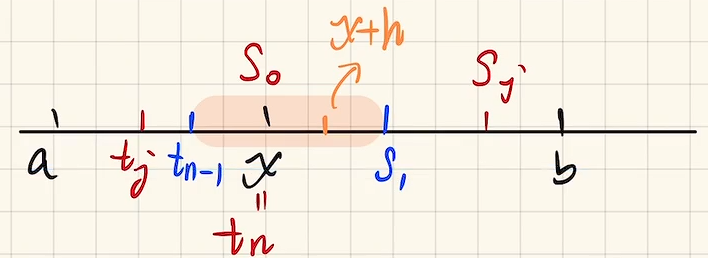 x+h
S₀ Sⱼ
a tⱼ tₙ₋₁ x S₁ b
=
tₙ